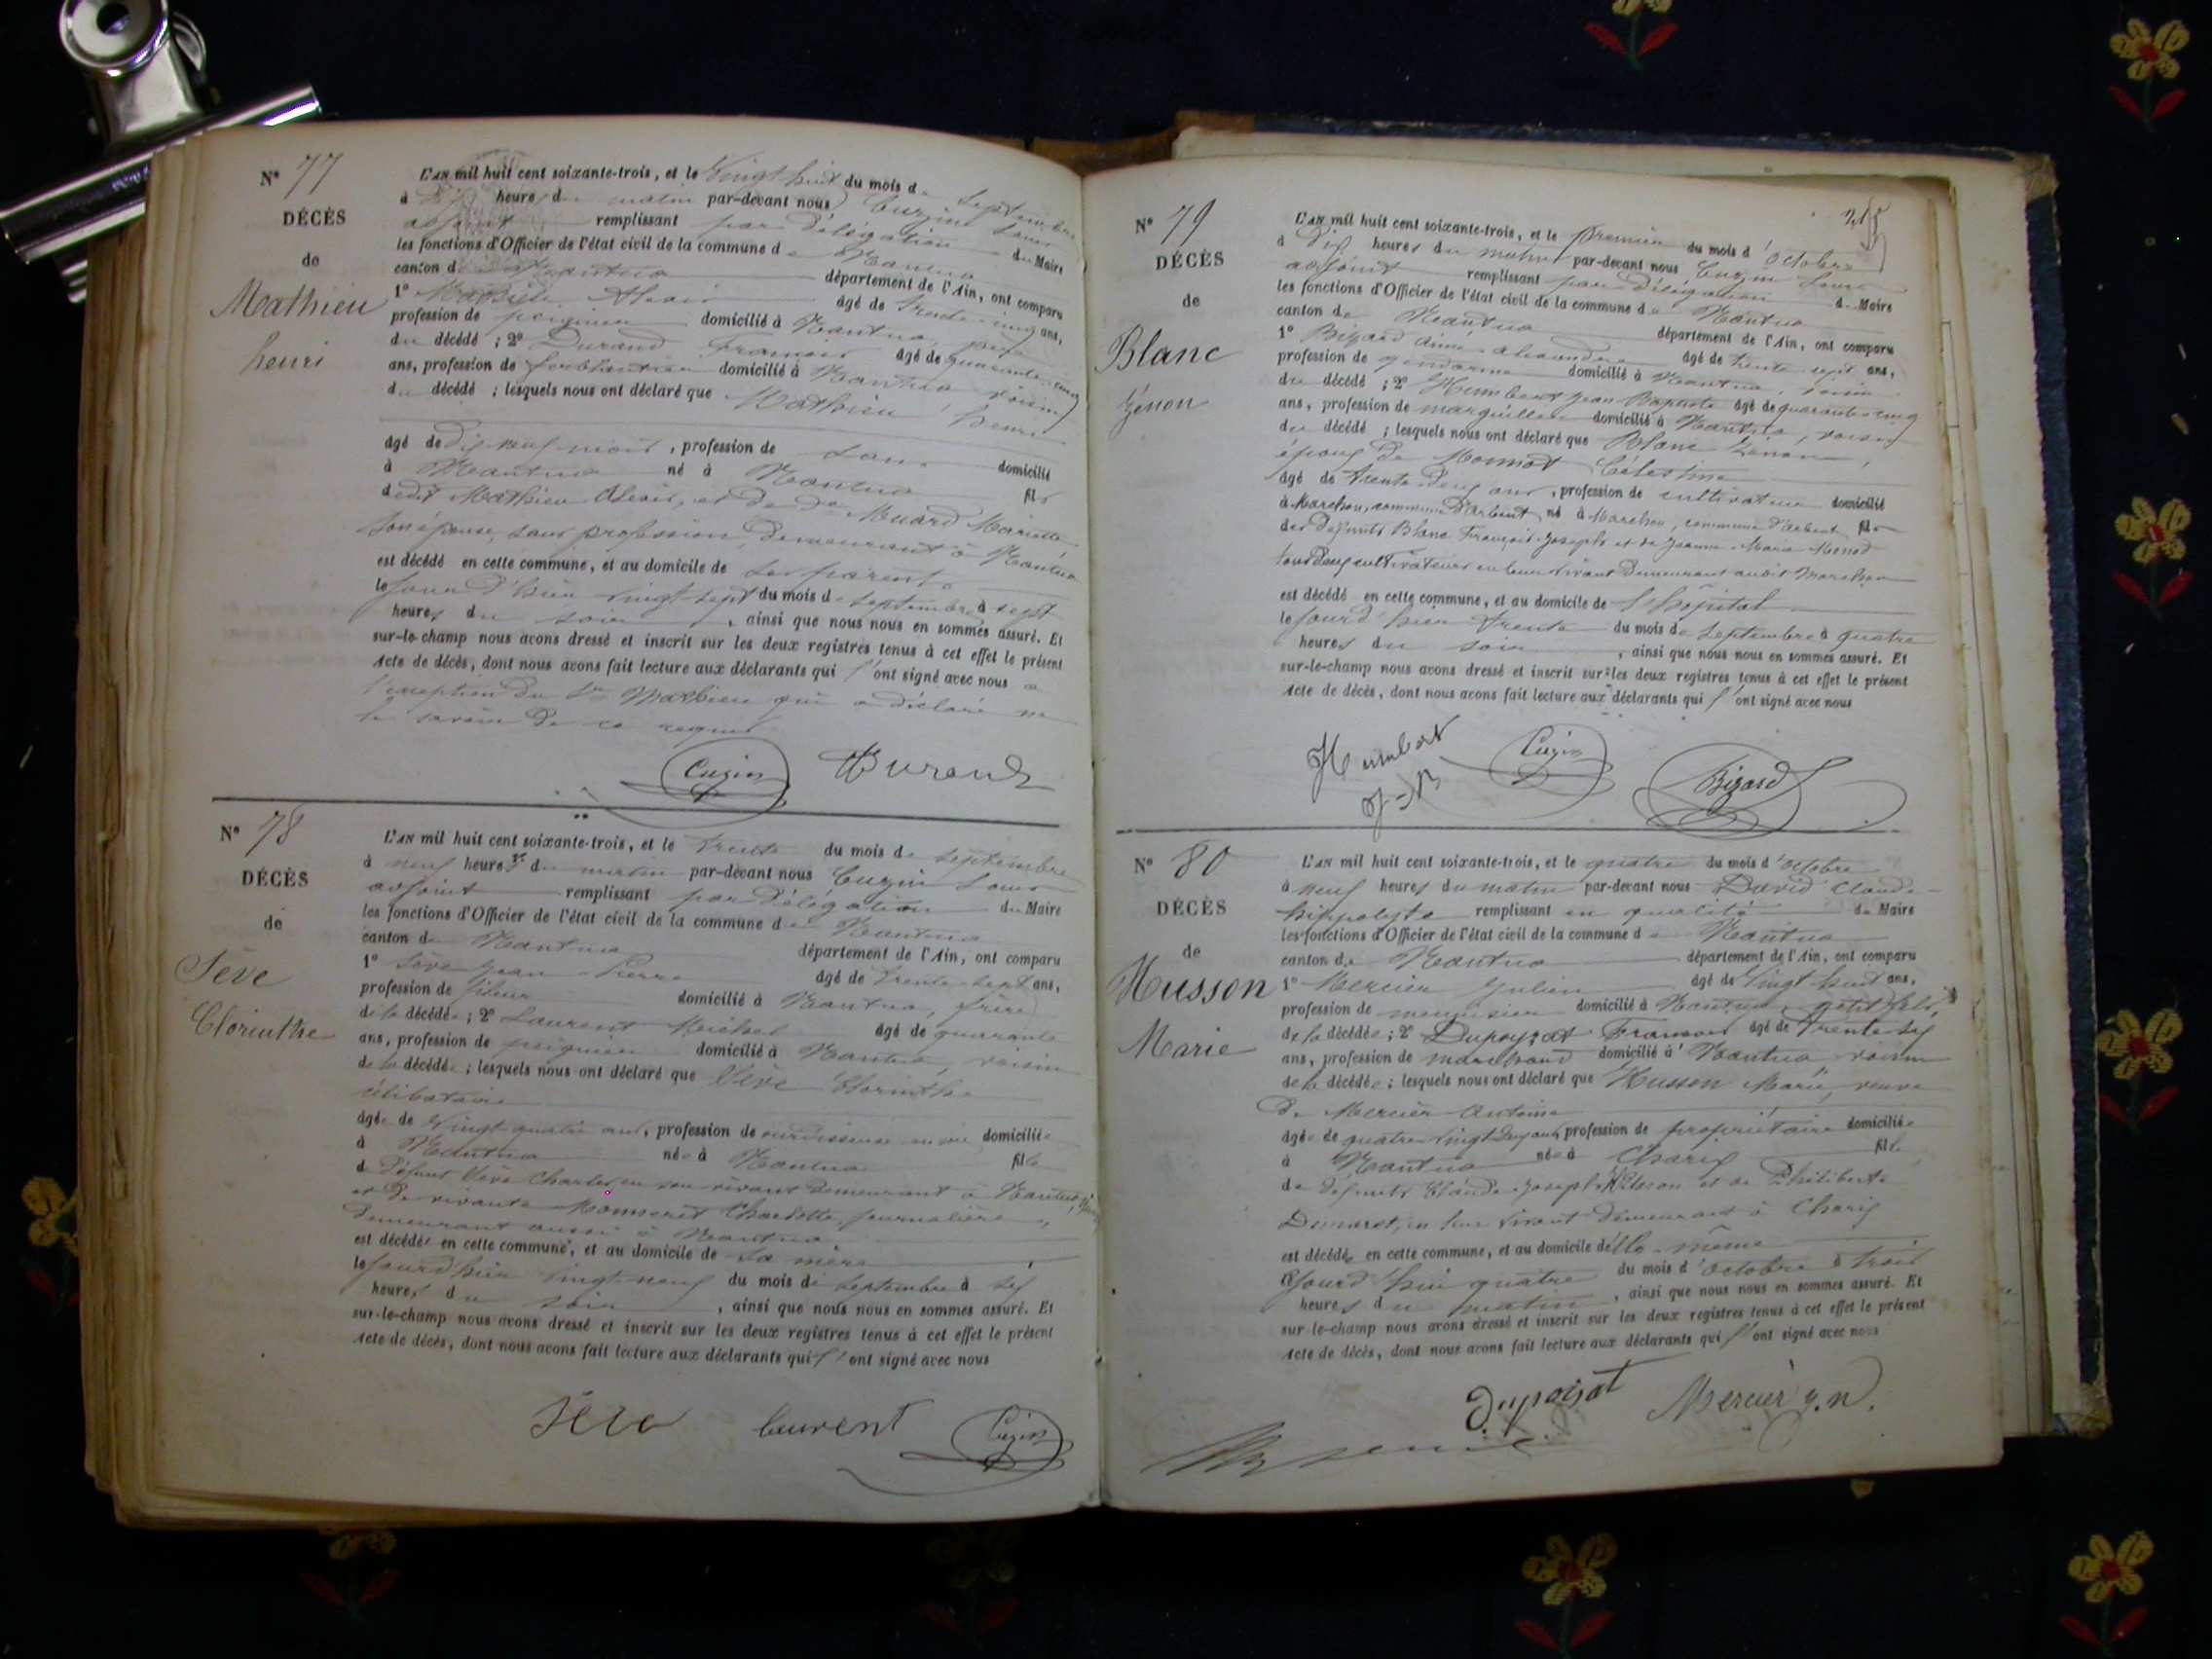 N° 77
DÉCÈS
de
Mathieu
henri
L'AN mil huit cent soixante-trois, et le Vingt huit du mois de Septembre
à Dix heures du matin par-devant nous Cuzin Louis
adjoint remplissant par Délégation du Maire
les fonctions d'Officier de l'état civil de la commune de Nantua
canton de Nantua département de l'Ain, ont comparu
1° Mathieu Alexis âgé de trente-cinq ans,
profession de peignier domicilié à Nantua, père
du décédé ; 2° Durand François âgé de quarante-cinq
ans, profession de ferblantier domicilié à Nantua voisin
du décédé ; lesquels nous ont déclaré que Mathieu henri
âgé de dix neuf mois, profession de sans domicilié
à Nantua né à Nantua fils
dudit Mathieu Alexis, et de de Muard Mariette
son épouse, sans profession, demeurant à Nantua
est décédé en cette commune, et au domicile de ses parents
le jour d'hier vingt-sept du mois de septembre à sept
heures du soir, ainsi que nous nous en sommes assuré. Et
sur-le-champ nous avons dressé et inscrit sur les deux registres tenus à cet effet le présent
Acte de décès, dont nous avons fait lecture aux déclarants qui l'ont signé avec nous a
l'exception du Sr Mathieu qui a déclaré ne
le savoir de ce requis
Cuzin Durand
N° 78
DÉCÈS
de
Sève
Clorinthe
L'AN mil huit cent soixante-trois, et le trente du mois de septembre
à neuf heures du matin par-devant nous Cuzin Louis
adjoint remplissant par Délégation du Maire
les fonctions d'Officier de l'état civil de la commune de Nantua
canton de Nantua département de l'Ain, ont comparu
1° Sève Jean-Pierre âgé de trente-sept ans,
profession de fileur domicilié à Nantua, frère
de la décédée ; 2° Laurent Michel âgé de quarante
ans, profession de peignier domicilié à Nantua, voisin
de la décédée ; lesquels nous ont déclaré que Sève Clorinthe
célibataire
âgée de Vingt quatre ans, profession de ourdisseuse en soie domiciliée
à Nantua née à Nantua fille
de Défunt Sève Charles en son vivant demeurant à Nantua
et de vivante Monneret Charlotte, journalière,
demeurant aussi à Nantua
est décédée en cette commune, et au domicile de sa mère
le jour d'hier vingt-neuf du mois de septembre à six
heures du soir, ainsi que nous nous en sommes assuré. Et
sur-le-champ nous avons dressé et inscrit sur les deux registres tenus à cet effet le présent
Acte de décès, dont nous avons fait lecture aux déclarants qui l'ont signé avec nous
Sève laurent Cuzin
N° 79
DÉCÈS
de
Blanc
Zénon
L'AN mil huit cent soixante-trois, et le premier du mois d'octobre
à Dix heures du matin par-devant nous Cuzin Louis
adjoint remplissant par Délégation du Maire
les fonctions d'Officier de l'état civil de la commune de Nantua
canton de Nantua département de l'Ain, ont comparu
1° Bizard Aimé Alexandre âgé de trente-sept ans,
profession de gendarme domicilié à Nantua, voisin
du décédé ; 2° Humbert Jean Baptiste âgé de quarante-cinq
ans, profession de marguillier domicilié à Nantua, voisin
du décédé ; lesquels nous ont déclaré que Blanc Zénon,
époux de Monnod Célestine
âgé de trente deux ans, profession de cultivateur domicilié
à Marchon, commune d'Arbent né à Marchon, commune d'Arbent fils
des défunts Blanc François-Joseph et de Jeanne-Marie Monod
tous deux cultivateurs en leur vivant demeurant audit Marchon
est décédé en cette commune, et au domicile de l'hopital
le jour d'hier trente du mois de septembre à quatre
heures du soir, ainsi que nous nous en sommes assuré. Et
sur-le-champ nous avons dressé et inscrit sur les deux registres tenus à cet effet le présent
Acte de décès, dont nous avons fait lecture aux déclarants qui l'ont signé avec nous
Humbert J=B Cuzin Bizard
N° 80
DÉCÈS
de
Husson
Marie
L'AN mil huit cent soixante-trois, et le quatre du mois d'octobre
à neuf heures du matin par-devant nous David Claude-
hippolyte remplissant en qualité de Maire
les fonctions d'Officier de l'état civil de la commune de Nantua
canton de Nantua département de l'Ain, ont comparu
1° Mercier Julien âgé de Vingt huit ans,
profession de menuisier domicilié à Nantua, petit fils,
de la décédée ; 2° Dupoyzat François âgé de trente-six
ans, profession de marchand domicilié à Nantua voisin
de la décédée ; lesquels nous ont déclaré que Husson Marie, veuve
de Mercier Antoine
âgée de quatre vingt deux ans, profession de propriétaire domiciliée
à Nantua née à Charix fille
de défunts Claude-Joseph Husson et de Philiberte
Demaret, en leur vivant demeurant à Charix
est décédée en cette commune, et au domicile d'elle-même
le jourd'hui quatre du mois d'octobre à trois
heures du matin, ainsi que nous nous en sommes assuré. Et
sur-le-champ nous avons dressé et inscrit sur les deux registres tenus à cet effet le présent
Acte de décès, dont nous avons fait lecture aux déclarants qui l'ont signé avec nous
Dupoizat Mercier